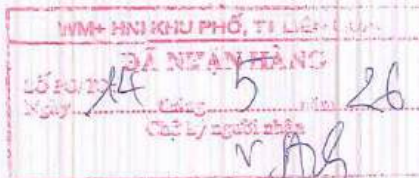 WM+ HNI KHU PHỐ, TT LIÊN
ĐÃ NHẬN HÀNG
Số PO/TO
Ngày 14 tháng 5 năm 26
Chữ ký người nhận